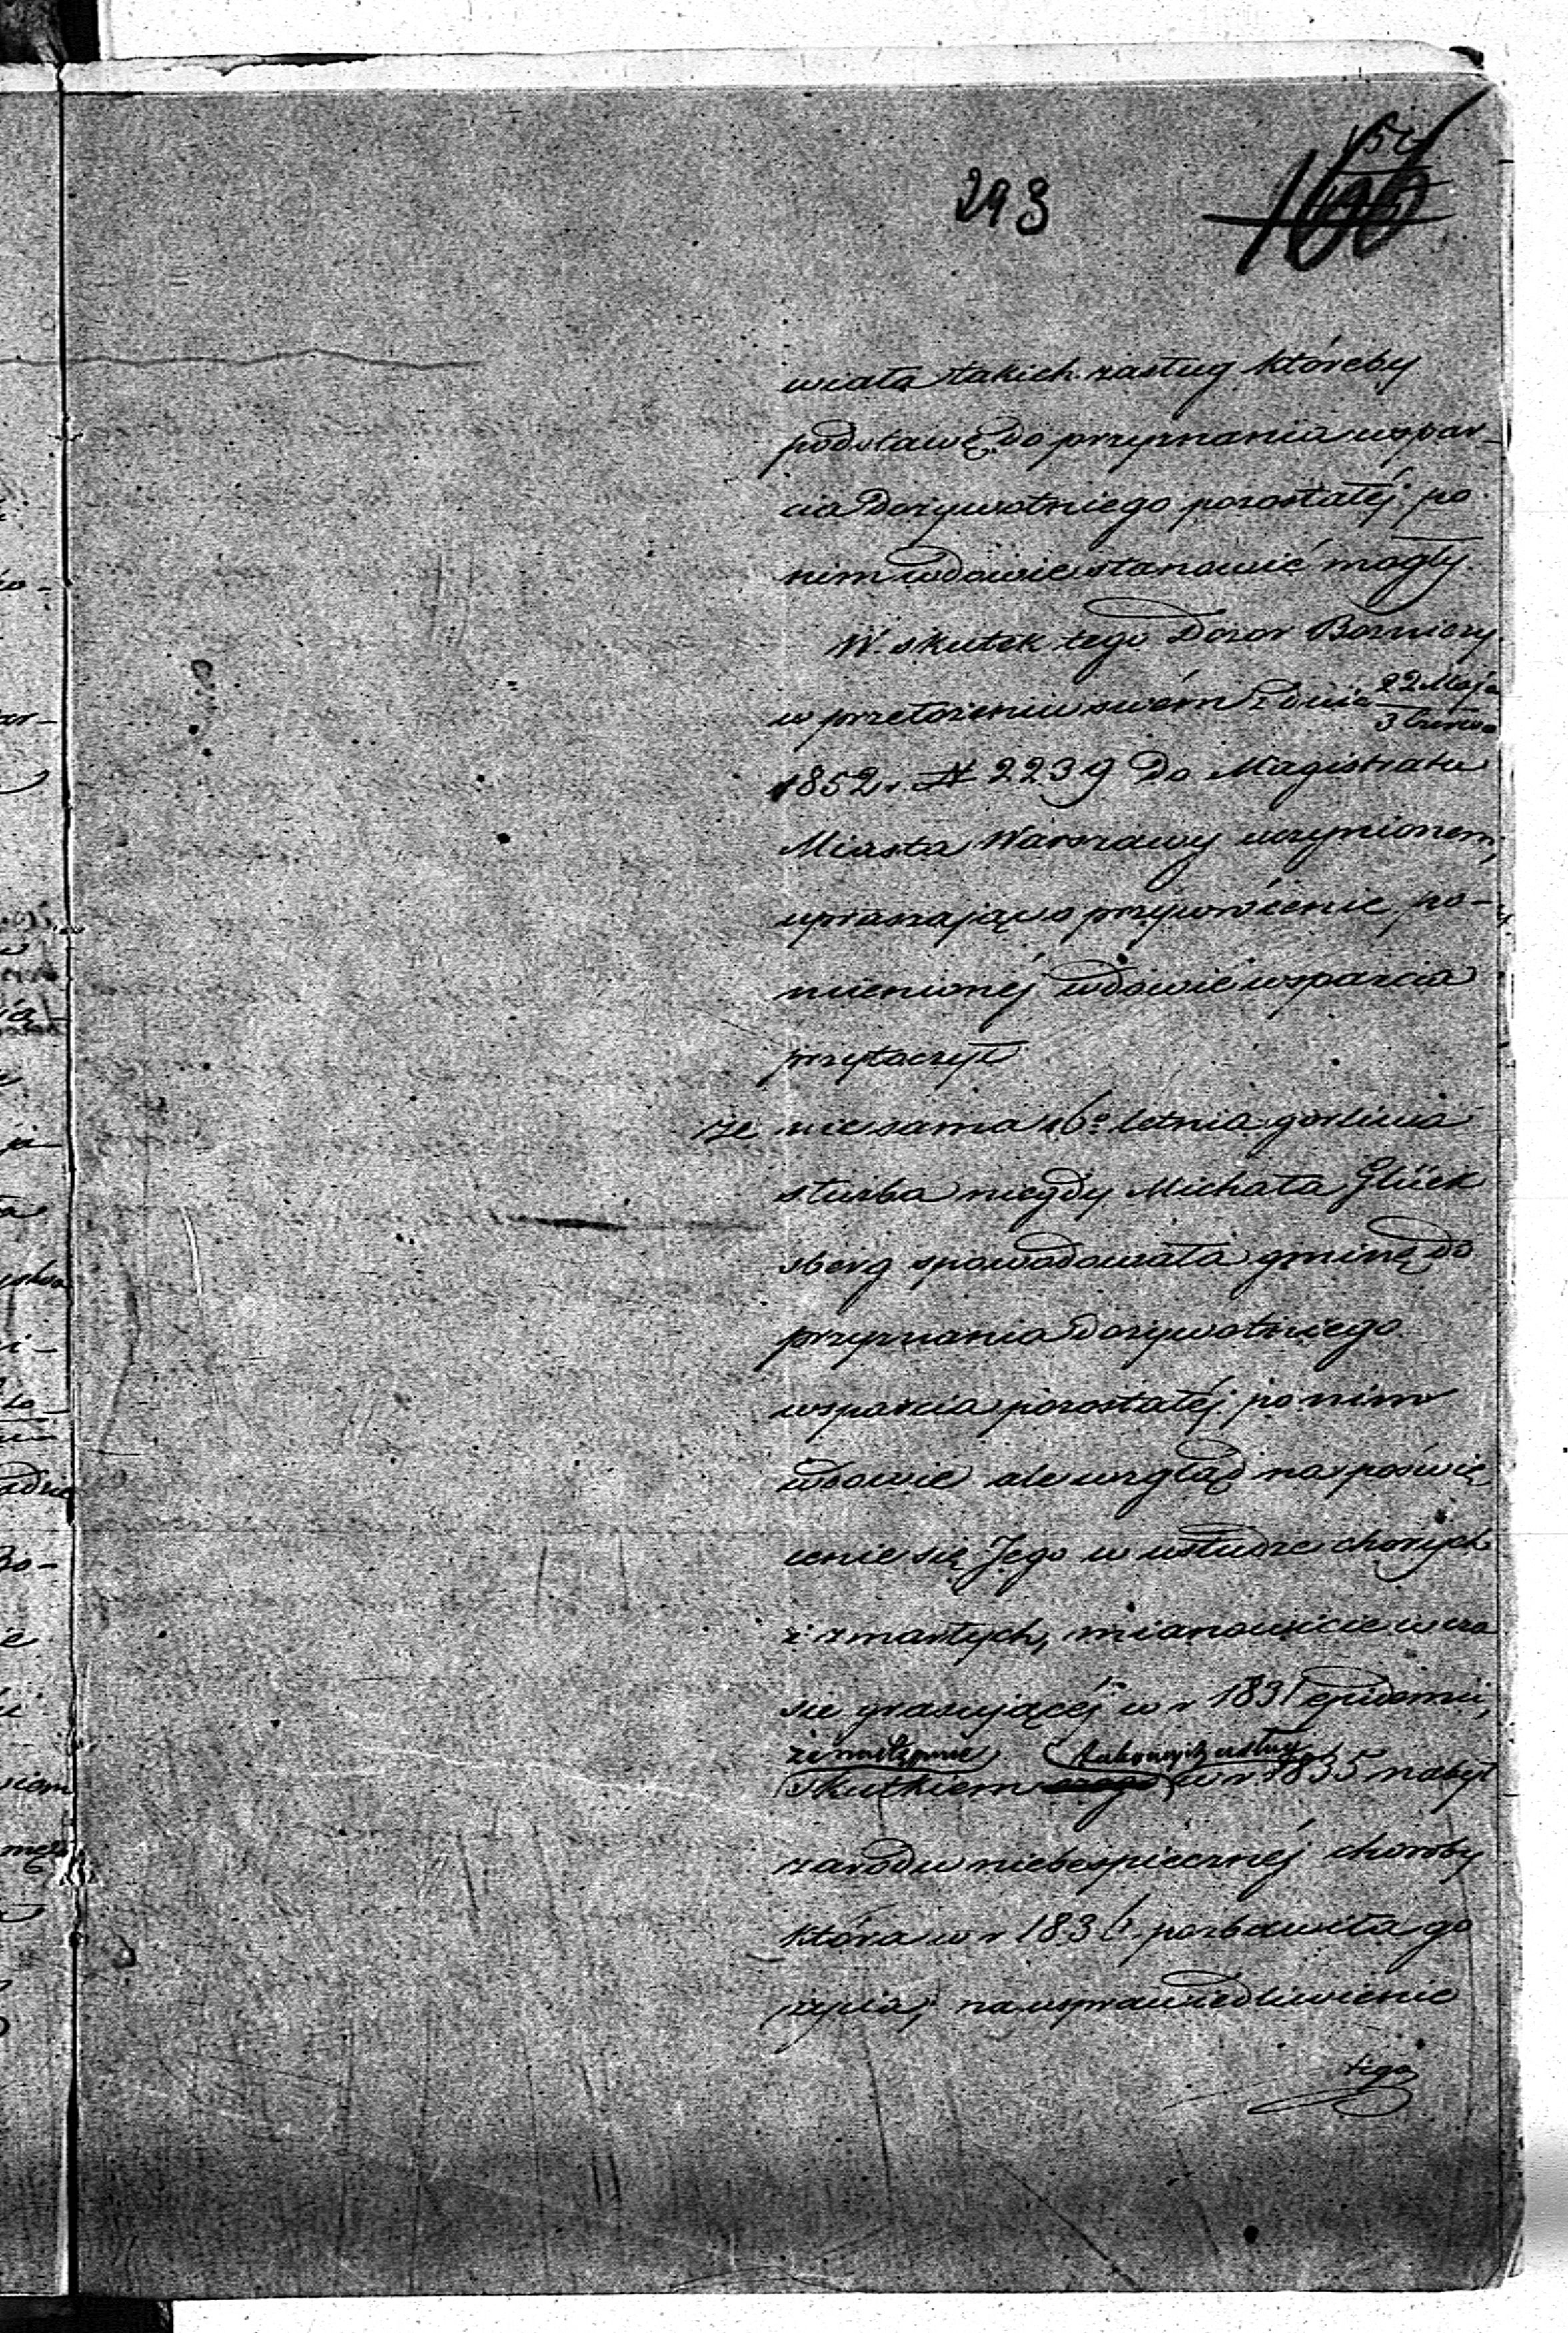 293
wiała takich zasług któreby
podstawę do przyznania wspar-
cia dożywotniego pozostałéj po
nim wdowie stanowić mogły.
W skutek tego Dozor Bożniczy
w przełożeniu swém z dnia 22 Maja / 3 Czerwca
1852 r. N 2239 do Magistratu
Miasta Warszawy uczynionem,
upraszając o przywrócenie po-
mienionéj wdowie wsparcia
przytoczył
że nie sama 16o letnia gorliwa
służba niegdy Michała Glück
sberg spowodowała gminę do
przyznania dożywotniego
wsparcia pozostałéj po nim
wdowie ale wzgląd na poświę
cenie się Jego w usłudze chorych
i zmarłych, mianowicie w cza
sie grassującéj w r 1831 epidemii,
że następnie takowych usług
skutkiem czego w r 1835 nabył
zarodu niebespiecznéj choroby
która w r 1836 pozbawiła go
życia; na usprawiedliwienie
tego